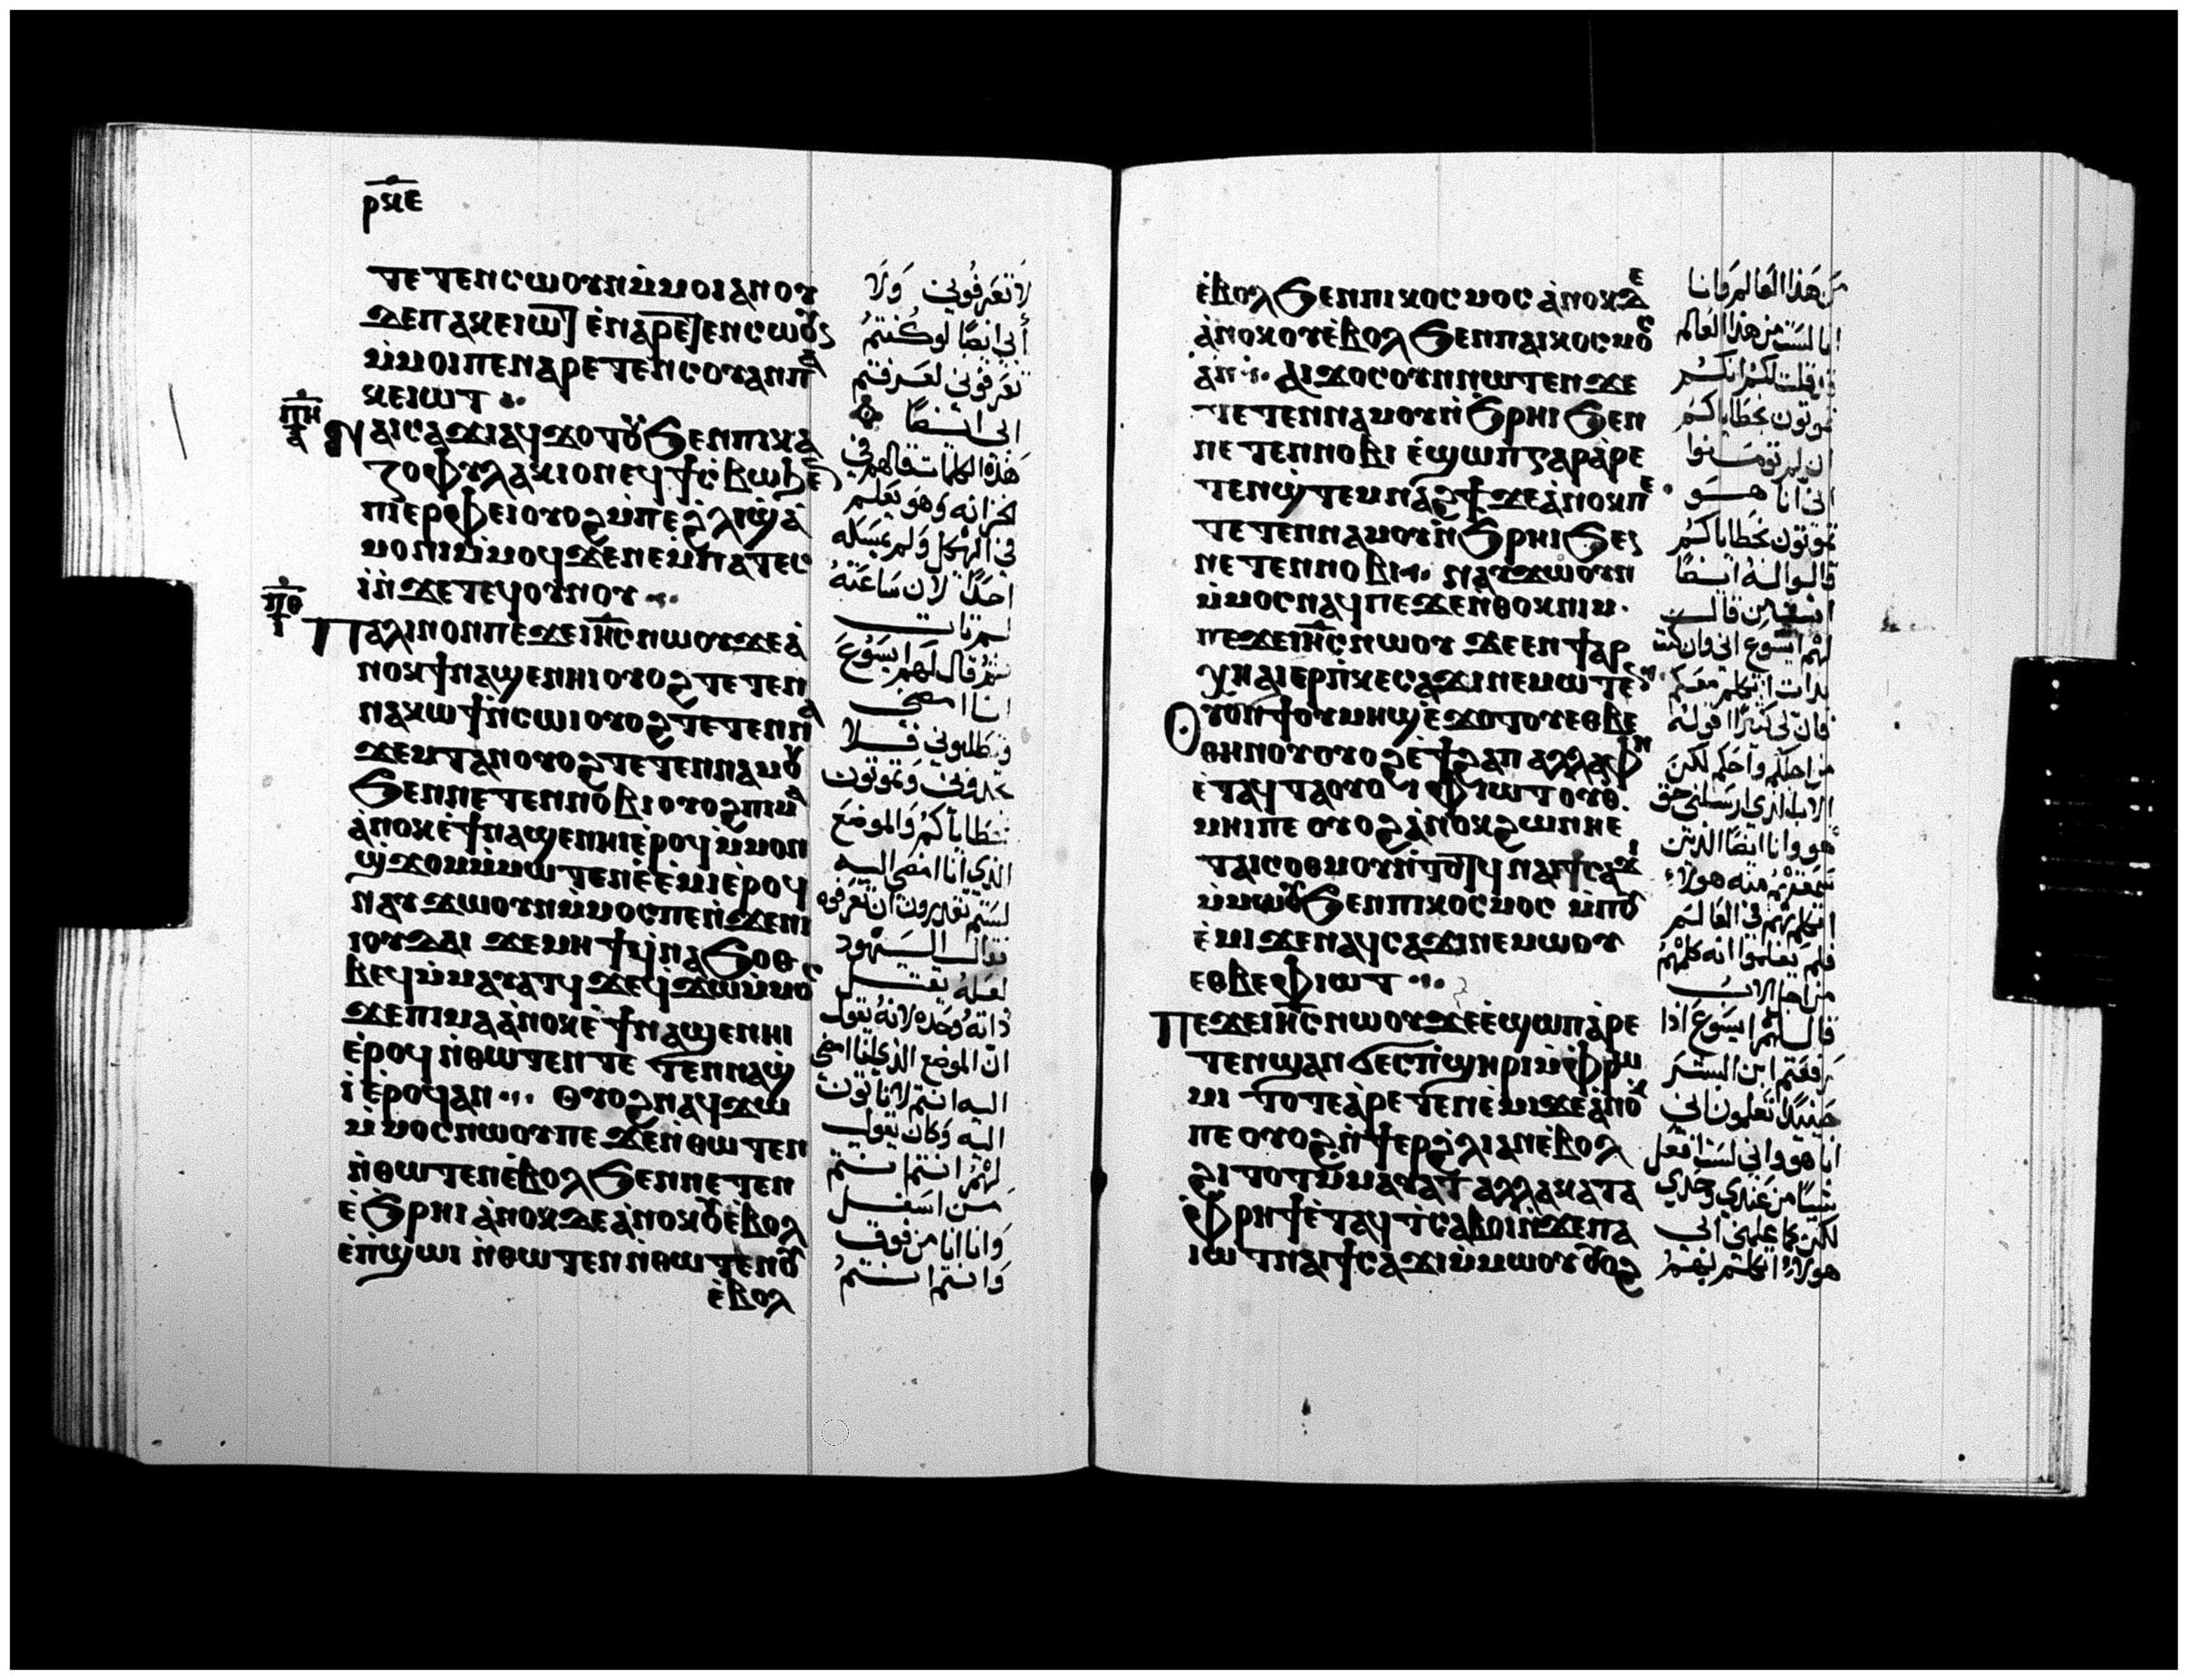 ⲣⲝⲉ
ⲧⲉⲧⲉⲛⲥⲱⲟⲩⲛⲙ̇ⲙⲟⲓⲁⲛⲟⲩ
ⲙ̇ⲙⲟⲓⲡⲉⲛⲁⲣⲉⲧⲉⲛⲥⲟⲩⲁⲛⲡⲁ
ⲕⲉⲓⲱⲧ
ⲡⲏ
ⲛⲁⲓⲥⲁϫⲓⲁϥϫⲟⲧⲟⲩϧⲉⲛⲡⲓⲅⲁ
ⲍⲟⲫⲩⲗⲁⲕⲓⲟⲛⲉϥϯⲥ̇ⲃⲱϧⲉⲛ
ⲡⲓⲉⲣⲫⲉⲓⲟⲩⲟϩⲙ̇ⲡⲉϩ̇ⲗⲓϣ̇ⲁ
ⲙⲟⲛⲓⲙ̇ⲙⲟϥϫⲉⲛⲉⲙ̇ⲡⲁⲧⲉⲥ
ⲓ̇ⲛ̇ϫⲉⲧⲉϥⲟⲩⲛⲟⲩ
ⲡⲑ
ⲡⲁⲗⲓⲛⲟⲛⲡⲉϫⲉⲓⲏⲥⲛⲱⲟⲩϫⲉⲁ̇
ⲛⲟⲕϯⲛⲁϣⲉⲛⲏⲓⲟⲩⲟϩⲧⲉⲧⲉⲛ
ⲛⲁⲕⲱϯⲛ̇ⲥⲱⲓⲟⲩⲟϩⲧⲉⲧⲉⲛⲛⲁ
ϫⲉⲙⲧⲁⲛⲟⲩⲟϩⲧⲉⲧⲉⲛⲛⲁⲙⲟⲩ
ϧⲉⲛⲛⲉⲧⲉⲛⲛⲟⲃⲓⲟⲩⲟϩⲡⲓⲙⲁ
ⲁ̇ⲛⲟⲕⲉ̇ϯⲛⲁϣⲉⲛⲏⲓⲉ̇ⲣⲟϥⲙ̇ⲙⲟⲛ
ϣ̇ϫⲟⲙⲙ̇ⲙⲱⲧⲉⲛⲉ̇ⲉ̇ⲙ̇ⲓⲉ̇ⲣⲟϥ
ⲛⲁⲩϫⲱⲟⲩⲛⲙ̇ⲙⲟⲥⲡⲉⲛ̇ϫⲉⲛⲓ
ⲓⲟⲩⲇⲁⲓ ϫⲉⲙⲏϯϥ̇ⲛⲁϧⲟⲑ
ⲃⲉϥⲙ̇ⲙⲁⲩⲁⲧϥϫⲉϥ̇ϫⲱⲙ̇ⲙⲟⲥ
ϫⲉⲡⲓⲙⲁⲁ̇ⲛⲟⲕⲉ̇ϯⲛⲁϣⲉⲛⲏⲓ
ⲉ̇ⲣⲟϥ ⲛ̇ⲑⲱⲧⲉⲛⲧⲉⲧⲉⲛⲛⲁϣ̇
ⲓ̇ⲉ̇ⲣⲟϥⲁⲛ ⲟⲩⲟϩⲛⲁϥϫⲱ
ⲙ̇ⲙⲟⲥⲛⲱⲟⲩⲡⲉ ϫⲉⲛ̇ⲑⲱⲧⲉⲛ
ⲛ̇ⲑⲱⲧⲉⲛⲉ̇ⲃⲟⲗϧⲉⲛⲛⲉⲧⲉⲛ
ⲉ̇ϧⲣⲏⲓ ⲁ̇ⲛⲟⲕⲇⲉⲁ̇ⲛⲟⲕⲟⲩⲉ̇ⲃⲟⲗ
ⲉ̇ⲛ̇ϣⲱⲓ ⲛ̇ⲑⲱⲧⲉⲛⲛ̇ⲑⲱⲧⲉⲛⲟⲩ
ⲉ̇ⲃⲟⲗ
لا تعرفوني ولا
أبي ايضًا لو كنتم
تعرفوني لعرفتم
ابي ايضًا
هذه الكلمات قالهم في
الخزانه وهو يعلم
في الهيكل ولم يمسكه
احدًا لان ساعته
لم تات
ثم قال لهم ايسوع
انا امضي
وتطلبوني فلا
تجدوني وتموتون
بخطاياكم والموضع
الذي انا امضي اليه
لستم تقدرون ان تعرفوه
فقال اليهود
لعله يقتل
ذاته وحده لانه يقول
ان الموضع الذي انا امضي
اليه انتم لا تاتون
اليه وكان يقول
لهم انتم انتم
من اسفل
وانا انا من فوق
وانتم انتم
ⲉ̇ⲃⲟⲗϧⲉⲛⲡⲓⲕⲟⲥⲙⲟⲥ ⲁ̇ⲛⲟⲕⲇⲉ
ⲁ̇ⲛⲟⲕⲟⲩⲉ̇ⲃⲟⲗϧⲉⲛⲡⲁⲓⲕⲟⲥⲙⲟⲥ
ⲁⲛ ⲁⲓϫⲟⲥⲟⲩⲛⲛⲱⲧⲉⲛϫⲉ
ⲧⲉⲧⲉⲛⲛⲁⲙⲟⲩⲛ̇ϧⲣⲏⲓϧⲉⲛ
ⲛⲉⲧⲉⲛⲛⲟⲃⲓ ⲉ̇ϣⲱⲡⲅⲁⲣⲁ̇ⲣⲉ
ⲧⲉⲛϣ̇ⲧⲉⲙⲛⲁϩϯϫⲉⲁ̇ⲛⲟⲕⲡⲉ
ⲧⲉⲧⲉⲛⲛⲁⲙⲟⲩⲛ̇ϧⲣⲏⲓϧⲉⲛ
ⲛⲉⲧⲉⲛⲛⲟⲃⲓ ⲛⲁⲩϫⲱⲟⲩⲛ
ⲙ̇ⲙⲟⲥⲛⲁϥⲡⲉϫⲉⲛ̇ⲑⲟⲕⲛⲓⲙ
ⲡⲉϫⲉⲓⲏⲥⲛⲱⲟⲩ ϫⲉⲉⲛϯⲁⲣ
ⲭⲏⲁⲓⲉⲣⲡ̇ⲕⲉⲥⲁϫⲓⲛⲉⲙⲱⲧⲉⲛ
ⲟⲩⲟⲛϯⲟⲩⲙⲏϣⲉ̇ϫⲟⲧⲟⲩⲉⲑⲃⲉ
ⲑⲏⲛⲟⲩⲟⲩⲟϩⲉ̇ϯϩⲁⲡ ⲁⲗⲗⲁⲫⲏ
ⲉ̇ⲧⲁϥⲧⲁⲟⲩⲟⲓ ⲫⲓⲱⲧⲟⲩⲑ
ⲙⲏⲓⲡⲉ ⲟⲩⲟϩⲁ̇ⲛⲟⲕϩⲱⲛⲏⲉ
ⲧⲁⲓⲥⲟⲑⲙⲟⲩⲛ̇ⲧⲟⲧϥ ⲛⲁⲓϯⲥⲁϫⲓ
ⲙ̇ⲙⲱⲟⲩϧⲉⲛⲡⲓⲕⲟⲥⲙⲟⲥ ⲙ̇ⲡⲟⲩ
ⲉ̇ⲙⲓϫⲉⲛⲁϥⲥⲁϫⲓⲛⲉⲙⲱⲟⲩ
ⲉⲑⲃⲉⲫⲓⲱⲧ
ⲡⲉϫⲉⲓⲏⲥⲛⲱⲟⲩϫⲉⲉ̇ϣⲱⲡⲁ̇ⲣⲉ
ⲧⲉⲛϣⲁⲛϭⲉⲥⲡ̇ϣⲏⲣⲓⲙ̇ⲫⲣⲱ
ⲙⲓ ⲧⲟⲧⲉⲁ̇ⲣⲉⲧⲉⲛⲉ̇ⲙⲓϫⲉⲁ̇ⲛⲟⲕ
ⲡⲉ ⲟⲩⲟϩⲛ̇ϯⲉⲣϩ̇ⲗⲓⲁⲛⲉ̇ⲃⲟⲗ
ϩⲓⲧⲟⲧⲙ̇ⲙⲁⲩⲁⲧ ⲁⲗⲗⲁⲕⲁⲧⲁ
ⲫⲣⲏϯⲉ̇ⲧⲁϥⲧ̇ⲥⲁⲃⲟⲓⲛ̇ϫⲉⲡⲁ
ⲓⲱⲧⲛⲁⲓϯⲥⲁϫⲓⲙ̇ⲙⲱⲟⲩⲟⲩⲟϩ
من هذا العالم فانا
انا لست من هذا العالم
قد قلت لكم انكم
تموتون بخطاياكم
ان لم تومنوا
اني انا هو
تموتون بخطاياكم
قالوا له ايضًا
انت من قال
لهم ايسوع اني وان كنت
بدات اتكلم معكم
فان لي كثيرًا اقوله
من اجلكم واحكم لكن
الاب الذي ارسلني حق
هو وانا ايضا الذين
سمعتهم منه هولاء
اتكلم بهم في العالم
فلم يعلموا انه كلمهم
من اجل الاب
قال لهم ايسوع اذا
رفعتم ابن البشر
حينيذ تعلمون اني
انا هو واني لست افعل
شيئا من عندي وحدي
لكن كما علمني ابي
هولاء اتكلم بهم